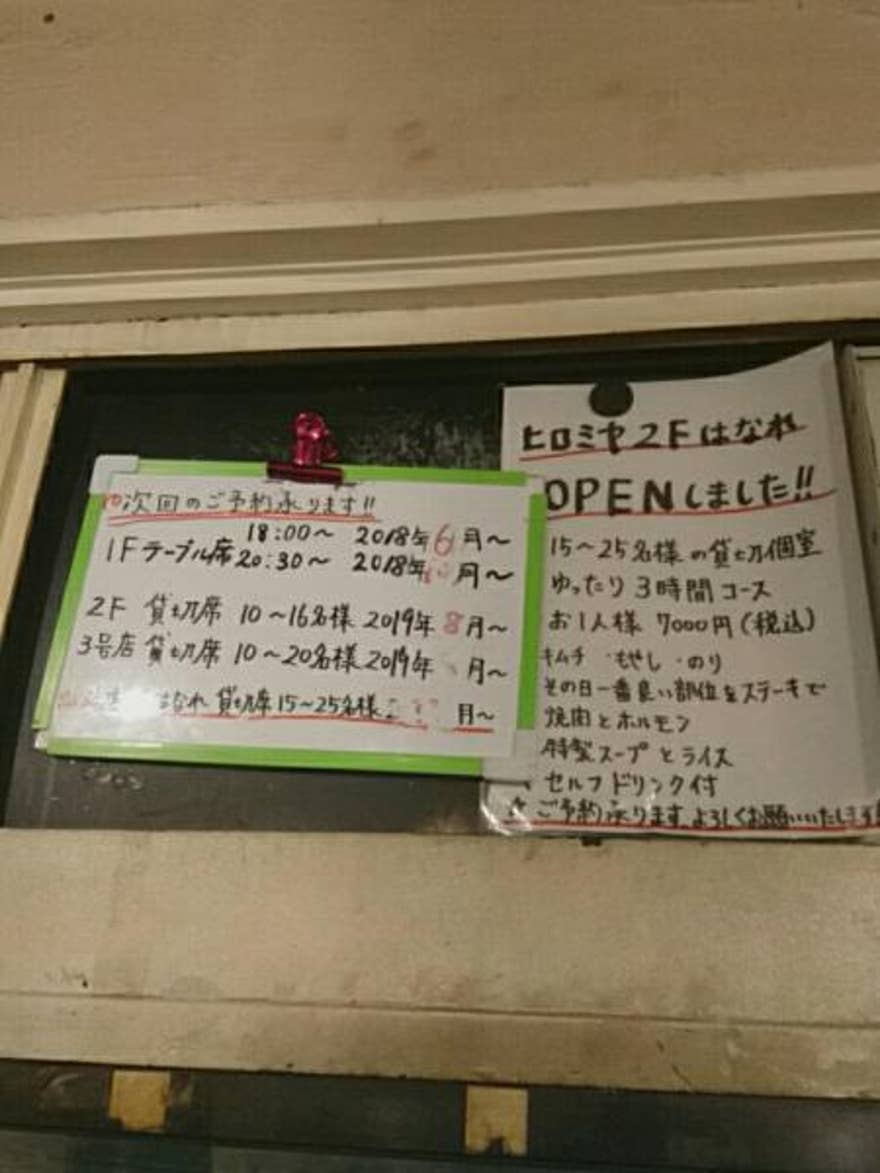 次回のご予約承ります!!
1Fテーブル席
18:00～ 2018年6月～
20:30～ 2018年 月～
2F 貸切席 10～16名様 2019年8月～
3号店 貸切席 10～20名様 2019年 月～
はなれ 貸切席 15～25名様 月～
ヒロミヤ2Fはなれ
OPENしました!!
15～25名様の貸切個室
ゆったり3時間コース
お1人様 7000円(税込)
キムチ・もやし・のり
その日一番良い部位をステーキで
焼肉とホルモン
特製スープとライス
セルフドリンク付
☆ご予約承ります、よろしくお願いいたします